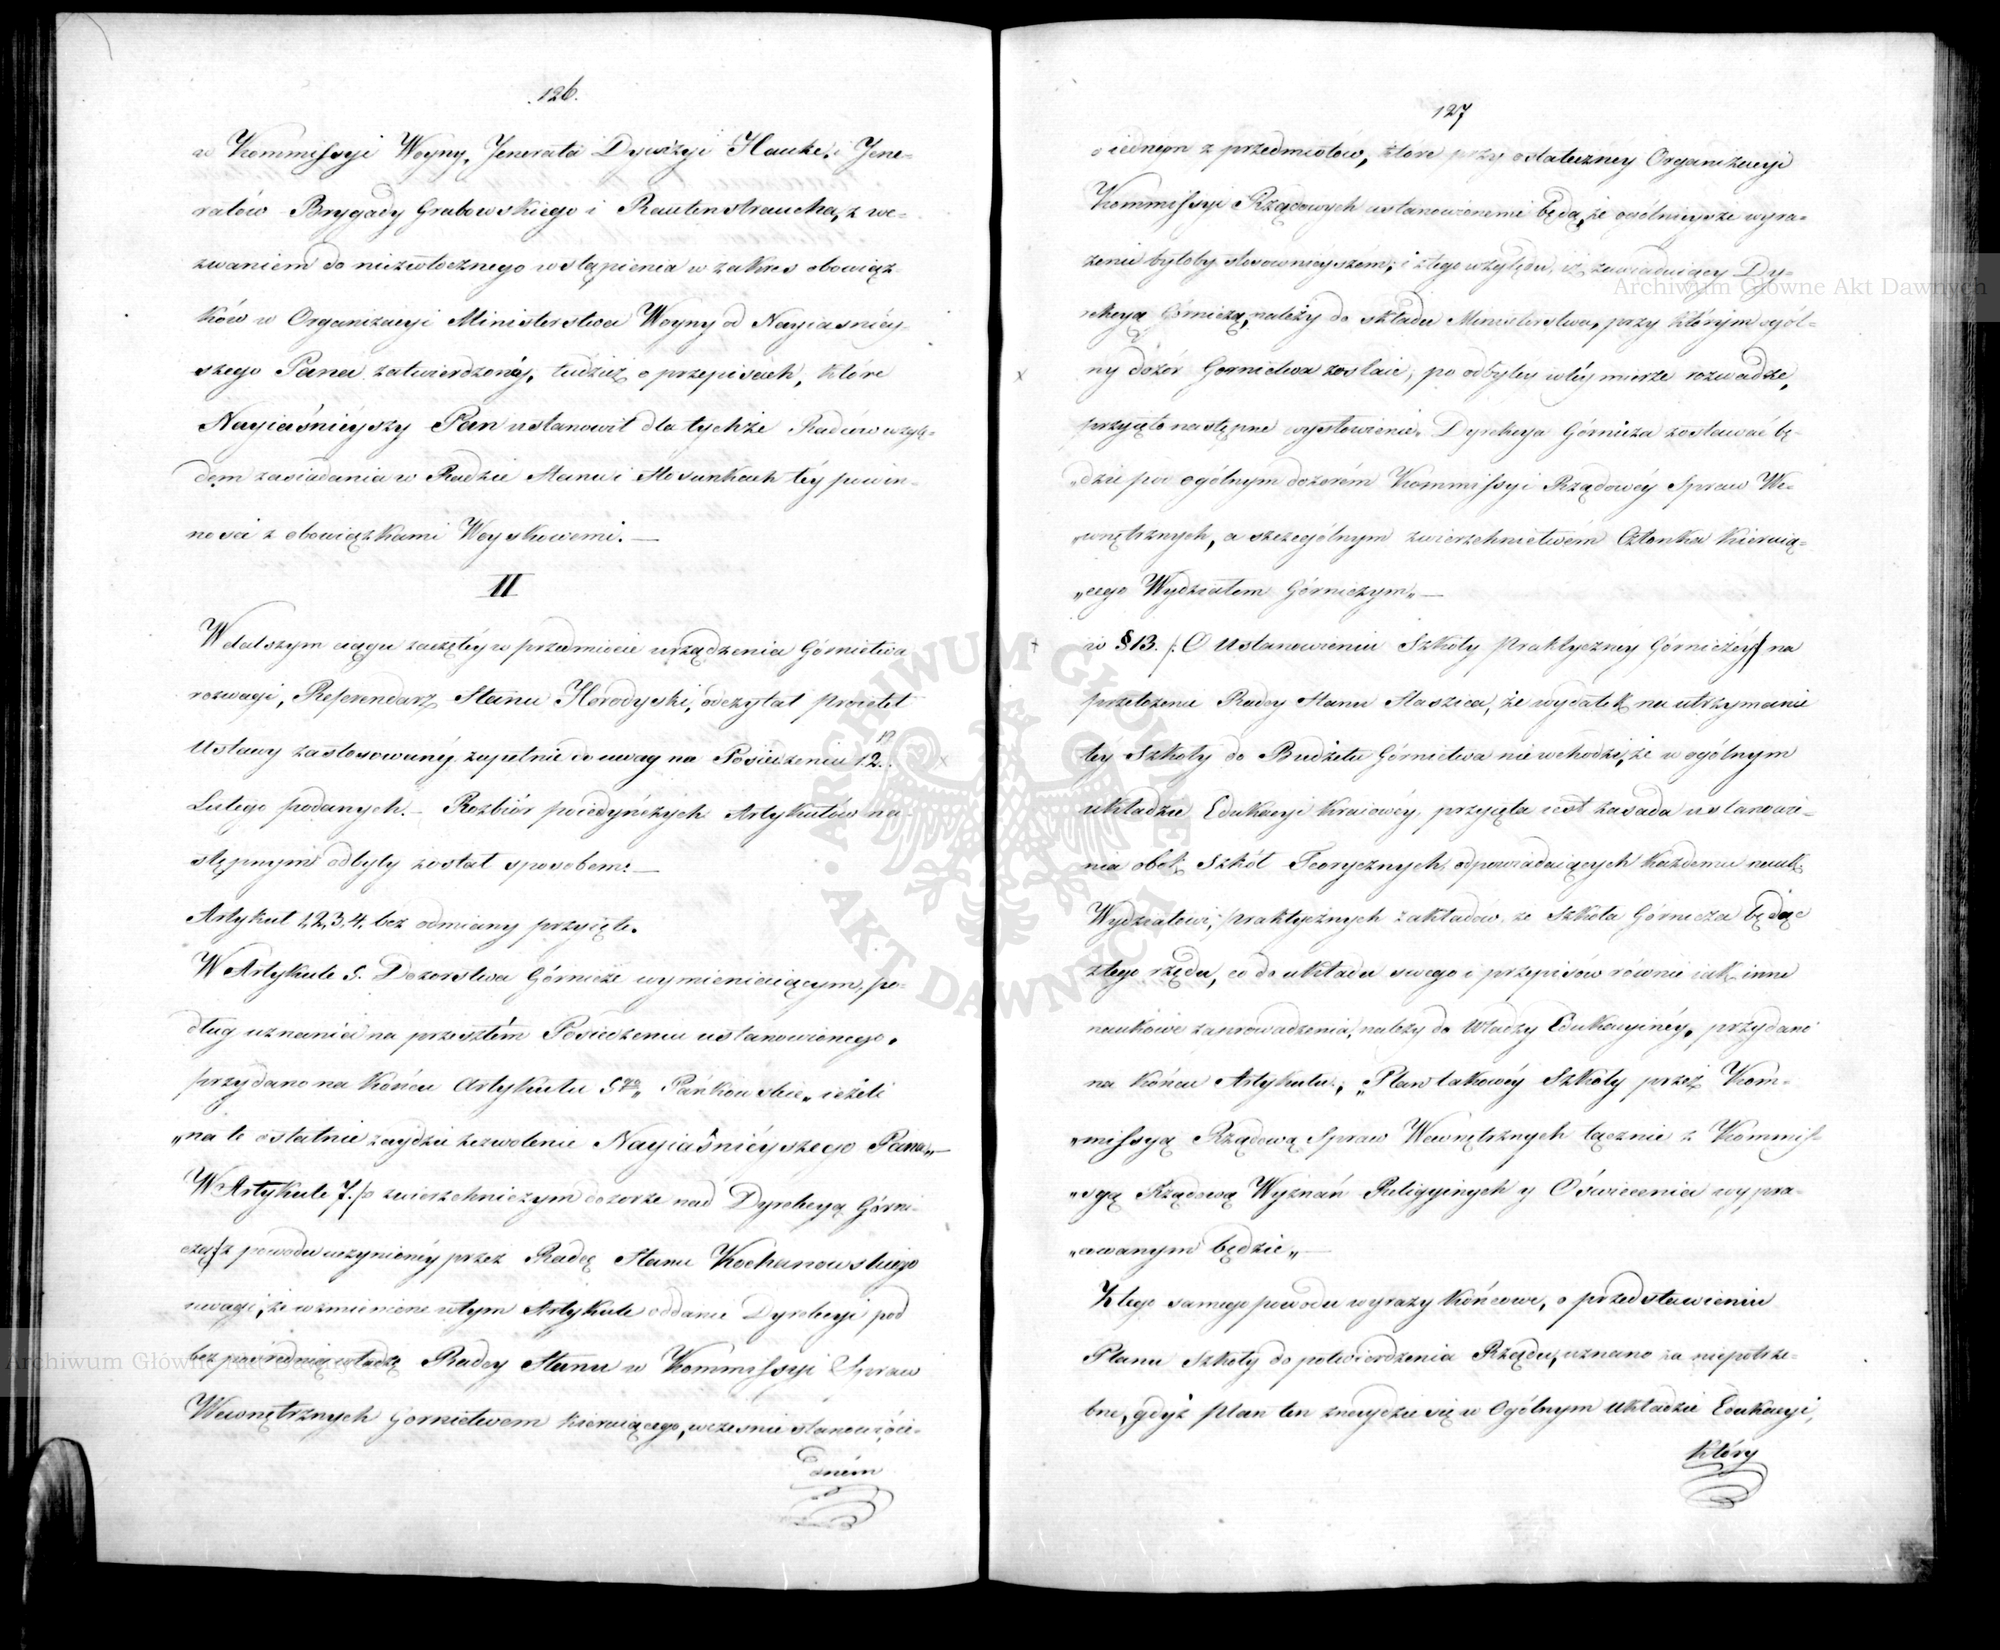 126.
w Kommissyi Woyny, Jenerała Dywizyi Hauke, i Jene-
rałów Brygady Grabowskiego i Rautenstraucha, z we-
zwaniem do niezwłocznego wstąpienia w zakres obowiąz-
ków w Organizacyi Ministerstwa Woyny od Nayiaśniéy-
szego Pana zatwierdzonéy, tudzież o przepisach, które
Nayiaśniéyszy Pan ustanowił dla tychże Radców wzglę-
dem zasiadania w Radzie Stanu i Stosunkach téy powin-
ności z obowiązkami Woyskowemi. —
II
W dalszym ciągu zaczętéy w przedmiocie urządzenia Górnictwa
rozwagi, Referendarz Stanu Horodyski, odczytał proiekt
Ustawy zastosowanéy zupełnie do uwag na Posiedzeniu 12.
Lutego podanych. — Rozbiór poiedyńczych Artykułów na-
stępnym odbyty został sposobem: —
Artykuł 1, 2, 3, 4, bez odmiany przyięte.
W Artykule 5. Dozorstwa Górnicze wymieniaiącym, po-
dług uznania na przeszłém Posiedzeniu ustanowionego,
przydano na końcu Artykułu 5go „Pańkowskie„ ieżeli
„na te ostatnie zaydzie zezwolenie Nayiaśniéyszego Pana„ —
W Artykule 7. /o zwierzchniczym dozorze nad Dyrekcyą Górni-
czą/ z powodu uczynionéy przez Radcę Stanu Kochanowskiego
uwagi, że wzmienione w tym Artykule oddanie Dyrekcyi pod
bezpośrednią władzę Radcy Stanu w Kommissyi Spraw
Wewnętrznych Gornictwem kieruiącego, wcześnie stanowi o ie-
dném
127
o iedném z przedmiotów, które przy ostateczney Organizacyi
Kommissyi Rządowych ustanowionemi będą, że ogólnieysze wyra-
żenie byłoby stosownieyszém; i z tego względu, iż zawiaduiący Dy-
rekcyą Górniczą, należy do składu Ministerstwa, przy którym ogól-
ny dozór Gornictwa zostaie, po odbytéy w téy mierze rozwadze,
przyięto następne wysłowienie, Dyrekcya Górnicza zostawać bę-
„dzie pod ogólnym dozorém Kommissyi Rządowéy Spraw We-
„wnętrznych, a szczególnym zwierzchnictwém Członka kieruią-
„cego Wydziałem Górniczym„ —
w § 13. /: O Ustanowieniu Szkoły Praktyczney Górniczéy/ na
przełożenie Radcy Stanu Staszica, że wydatek na utrzymanie
téy Szkoły do Budżetu Górnictwa nie wchodzi, że w ogólnym
układzie Edukacyi kraiowéy przyięta iest zasada ustanowie-
nia obok Szkół Teorycznych, odpowiadaiących każdemu nauk
Wydziałowi, praktycznych zakładów, że Szkoła Górnicza będąc
z tego rzędu, co do układu swego i przepisów równie iak inne
naukowe zaprowadzenia, należy do Władzy Edukacyinéy, przydano
na końcu Artykułu; „Plan takowéy Szkoły przez Kom-
„missyą Rządową Spraw Wewnętrznych łącznie z Kommis-
„syą Rządową Wyznań Religyinych y Oświecenia wypra-
„cowanym będzie„ —
Z tego samego powodu wyrazy końcowe, o przedstawieniu
Planu Szkoły do potwierdzenia Rządu, uznano za niepotrze-
bne, gdyż plan ten znaydzie się w Ogólnym Układzie Edukacyi,
który
Archiwum Główne Akt Dawnych
ARCHIWUM GŁÓWNE • AKT DAWNYCH •
Archiwum Główne Akt